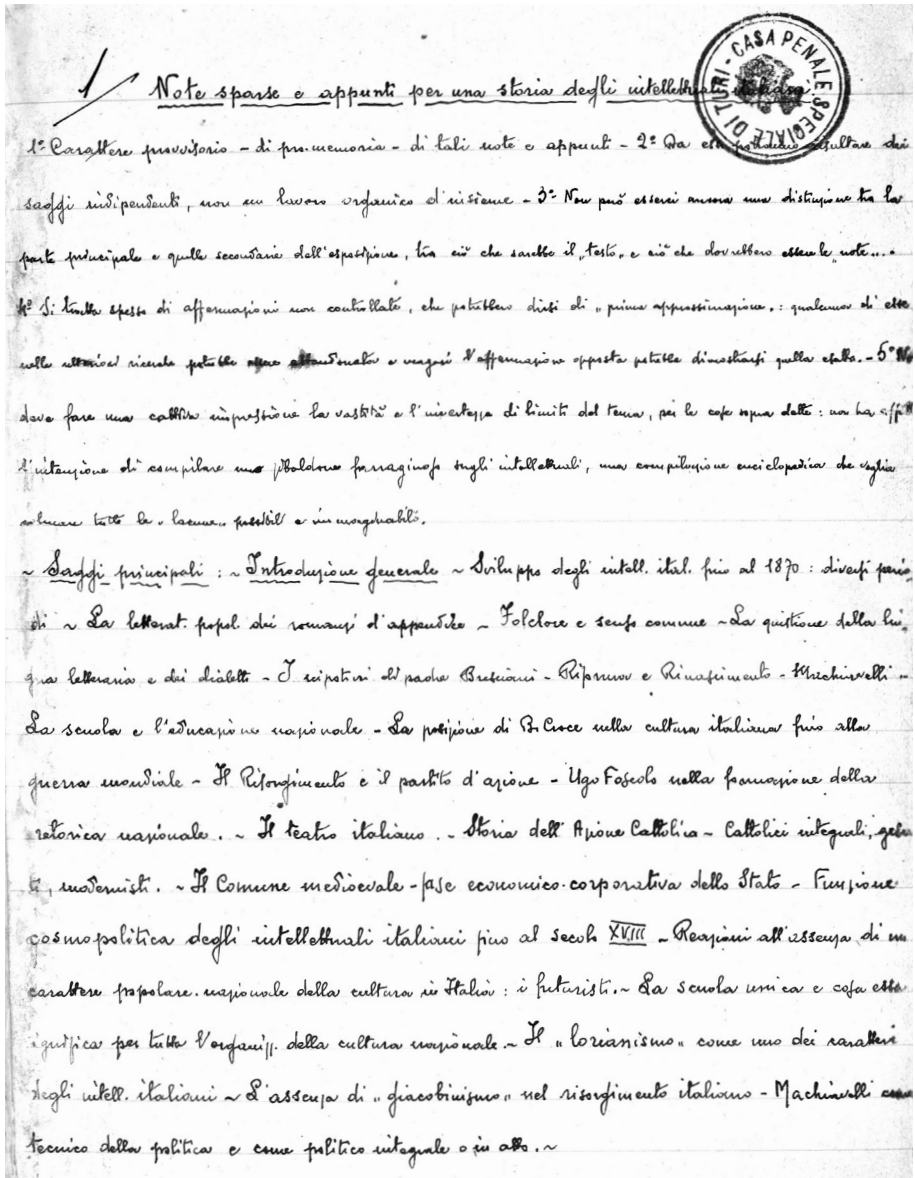 1
Note sparse e appunti per una storia degli intellettuali italiani.
CASA PENALE SPECIALE DI TURI
1º Carattere provvisorio – di pro-memoria – di tali note e appunti – 2º Da essi potranno risultare dei
saggi indipendenti, non un lavoro organico d'insieme – 3º Non può esserci ancora una distinzione tra la
parte principale e quelle secondarie dell'esposizione, tra ciò che sarebbe il „testo„ e ciò che dovrebbero essere le „note„. –
4º Si tratta spesso di affermazioni non controllate, che potrebbero dirsi di „prima approssimazione„: qualcuna di esse
nelle ulteriori ricerche potrebbe essere abbandonata e magari l'affermazione opposta potrebbe dimostrarsi quella esatta. – 5º No
deve fare una cattiva impressione la vastità e l'incertezza di limiti del tema, per le cose sopra dette: non ha aff
l'intenzione di compilare uno zibaldone farraginoso sugli intellettuali, una compilazione enciclopedica che voglia
colmare tutte le „lacune„ possibili e immaginabili.
~ Saggi principali: ~ Introduzione generale ~ Sviluppo degli intell. ital. fino al 1870: diversi perio-
di ~ La letterat. popol. dei romanzi d'appendice – Folclore e senso comune – La quistione della lin-
gua letteraria e dei dialetti – I nipotini di padre Bresciani – Riforma e Rinascimento – Machiavelli –
La scuola e l'educazione nazionale – La posizione di B. Croce nella cultura italiana fino alla
guerra mondiale – Il Risorgimento e il partito d'azione – Ugo Foscolo nella formazione della
retorica nazionale. ~ Il teatro italiano. – Storia dell'Azione Cattolica – Cattolici integrali, gesui
ti, modernisti. ~ Il Comune medioevale – fase economico-corporativa dello Stato – Funzione
cosmopolitica degli intellettuali italiani fino al secolo XVIII – Reazioni all'assenza di un
carattere popolare-nazionale della cultura in Italia: i futuristi. ~ La scuola unica e cosa essa
significa per tutta l'organizz. della cultura nazionale. ~ Il „lorianismo„ come uno dei caratteri
degli intell. italiani ~ L'assenza di „giacobinismo„ nel risorgimento italiano – Machiavelli come
tecnico della politica e come politico integrale o in atto. ~